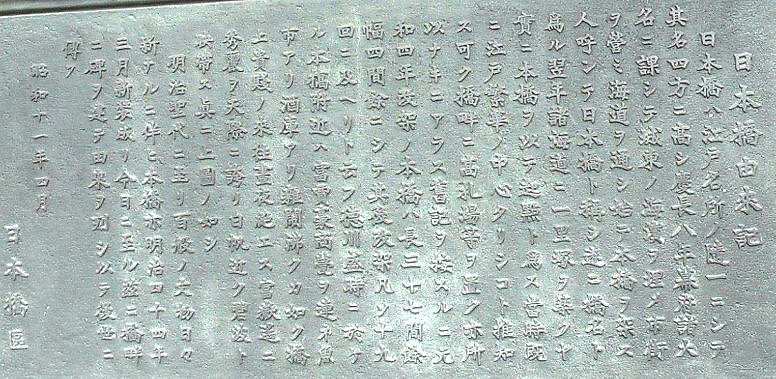 日本橋由来記
日本橋ハ江戸名所ノ随一ニシテ
其名四方ニ高シ慶長八年幕府諸大
名ニ課シテ城東ノ海濱ヲ埋メ市街
ヲ營ミ海道ヲ通シ始テ本橋ヲ架ス
人呼ンデ日本橋ト稱シ遂ニ橋名ト
爲ル翌年諸海道ニ一里塚ヲ築クヤ
實ニ本橋ヲ以テ起點ト爲ス當時既
ニ江戸繁華ノ中心タリシコト推知
ス可ク橋畔ニ高札場等ヲ置ク亦所
以ナキニアラス舊記ヲ按スルニ元
和四年改架ノ本橋ハ長三十七間餘
幅四間餘ニシテ其後改架凡ソ十九
回ニ及ヘリト云フ徳川盛時ニ於ケ
ル本橋附近ハ富買豪商甍ヲ連ネ魚
市アリ酒庫アリ雜鬧沸クカ如ク橋
上貴賤ノ來往晝夜絶エス富嶽遥ニ
秀麗ヲ天際ニ誇リ日帆近ク碧波ト
映帶ス眞ニ上圖ノ如シ
明治聖代ニ至リ百般ノ文物日々
新ナルニ伴ヒ本橋亦明治四十四年
三月新装成リ今日ニ至ル茲ニ橋畔
ニ碑ヲ建テ由来ヲ刻シ以テ後世ニ
傳フ
昭和十一年四月
日本橋區